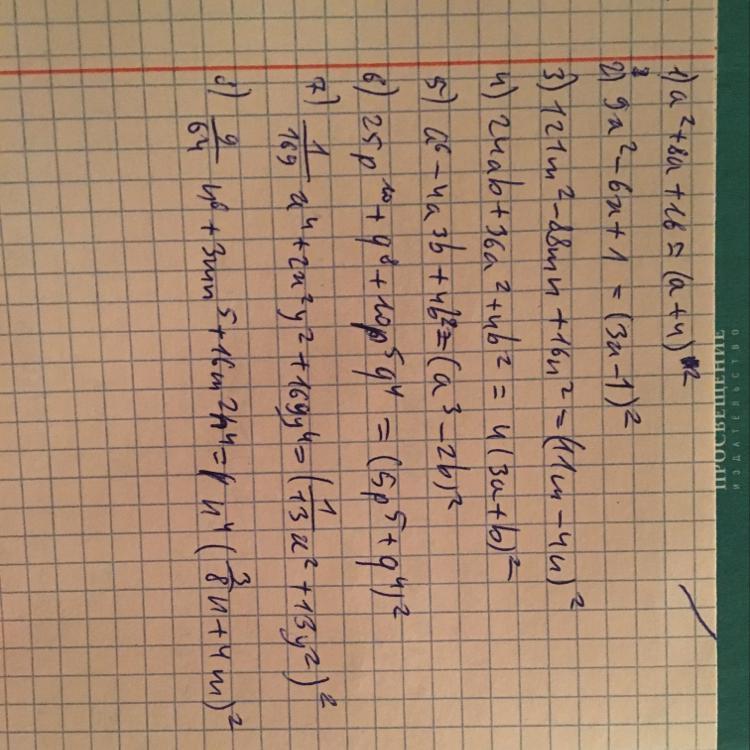 1) a² + 8a + 16 = (a + 4)²
2) 9x² - 6x + 1 = (3x - 1)²
3) 121m² - 88mn + 16n² = (11m - 4n)²
4) 24ab + 36a² + 4b² = 4(3a + b)²
5) a⁶ - 4a³b + 4b² = (a³ - 2b)²
6) 25p¹⁰ + q⁸ + 10p⁵q⁴ = (5p⁵ + q⁴)²
7) 1/169 x⁴ + 2x²y² + 169y⁴ = (1/13 x² + 13y²)²
8) 9/64 n⁶ + 3mn⁵ + 16m²n⁴ = n⁴ (3/8 n + 4m)²
ПРОСВЕЩЕНИЕ
ИЗДАТЕЛЬСТВО